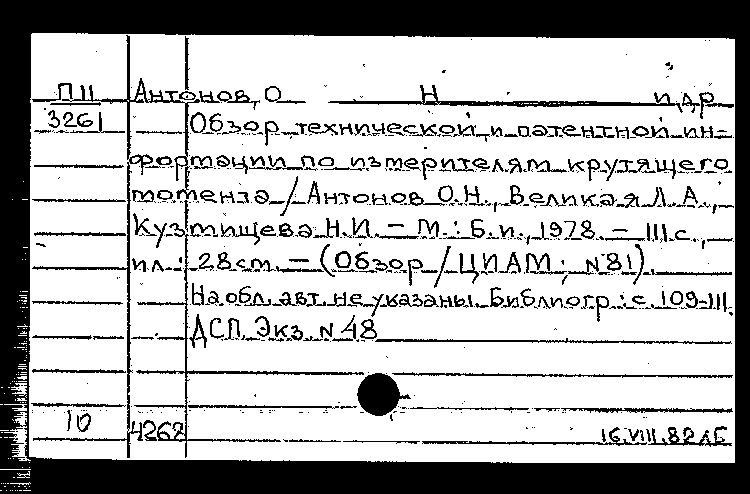 П11 Антонов, О Н и др
3261 Обзор технической и патентной ин-
формации по измерителям крутящего
момента / Антонов О.Н., Великая Л.А.,
Кузмищева Н.И. – М.: Б.и., 1978. – 111 с.,
ил.; 28 см. – (Обзор / ЦИАМ; №81).
На обл. авт. не указаны. Библиогр.: с. 109-111.
ДСП. Экз. № 48
10 4268 16.VIII.82 ЛБ